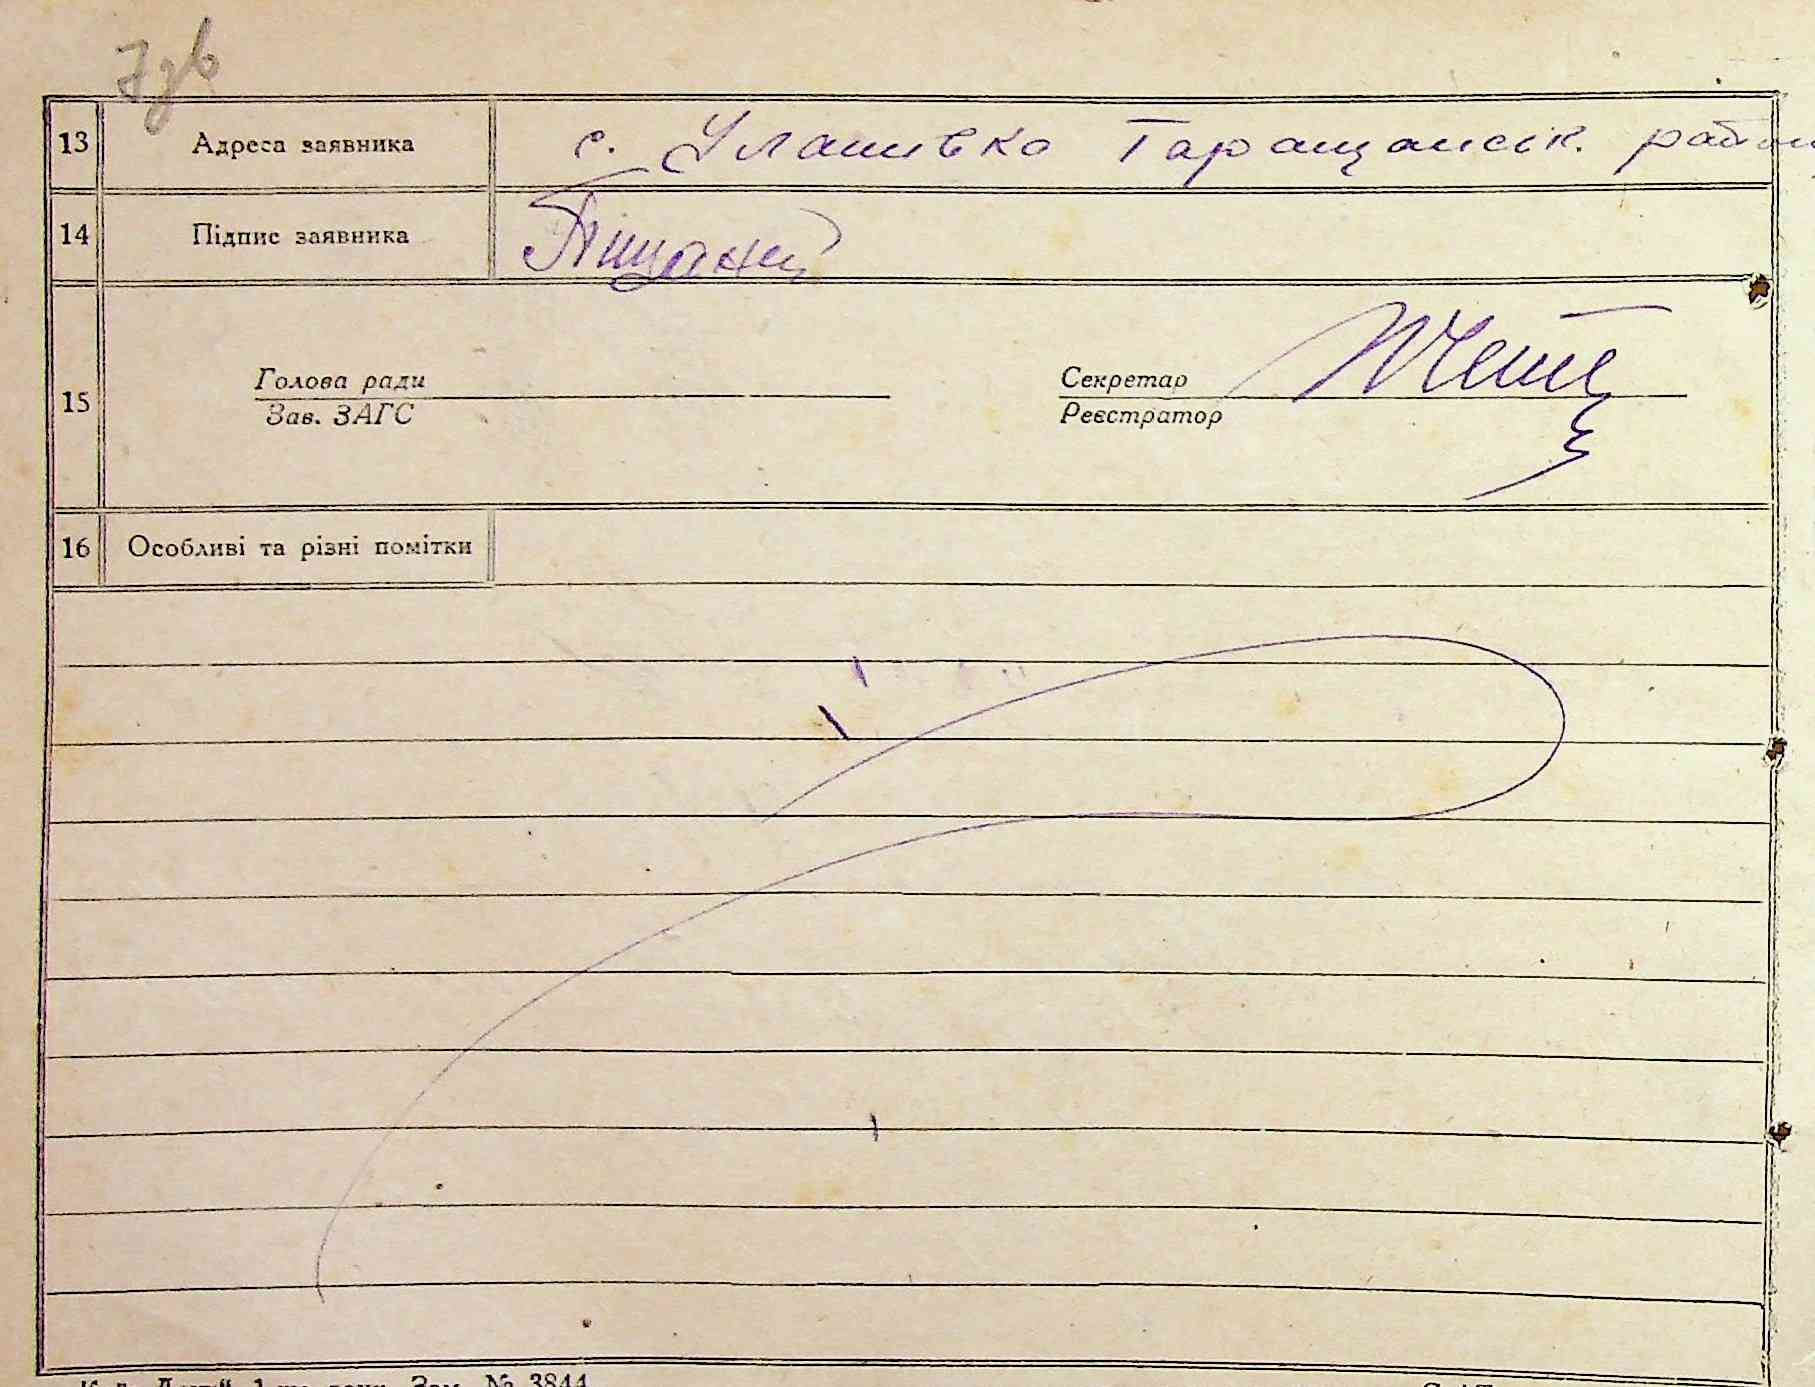 7
13 Адреса заявника с. Улашівка Таращанськ. район
14 Підпис заявника Піщаний
15
Голова ради
Зав. ЗАГС
Секретар
Реєстратор
16 Особливі та різні помітки
Зам. № 3844